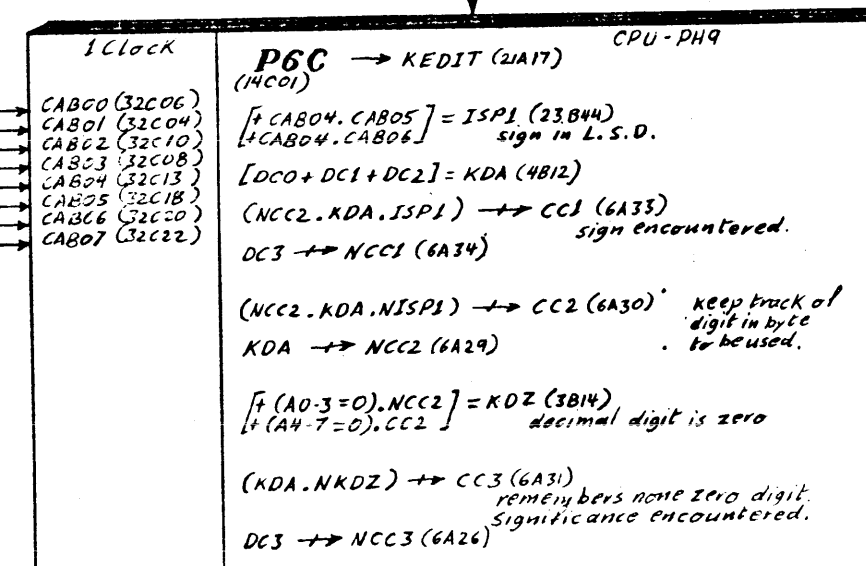 1 Clock
CPU-PH9
P6C → KEDIT (21A17)
(14C01)
CAB00 (32C06)
CAB01 (32C04)
CAB02 (32C10)
CAB03 (32C08)
CAB04 (32C13)
CAB05 (32C18)
CAB06 (32C20)
CAB07 (32C22)
[+ CAB04. CAB05
+CAB04. CAB06] = ISP1 (23B44)
sign in L.S.D.
[DC0 + DC1 + DC2] = KDA (4B12)
(NCC2.KDA.ISP1) ↦ CC1 (6A33)
sign encountered.
DC3 ↦ NCC1 (6A34)
(NCC2.KDA.NISP1) ↦ CC2 (6A30) keep track of
digit in byte
KDA ↦ NCC2 (6A29) to be used.
[+ (A0-3=0).NCC2
+ (A4-7=0).CC2] = KDZ (3B14)
decimal digit is zero
(KDA.NKDZ) ↦ CC3 (6A31)
remembers none zero digit.
Significance encountered.
DC3 ↦ NCC3 (6A26)